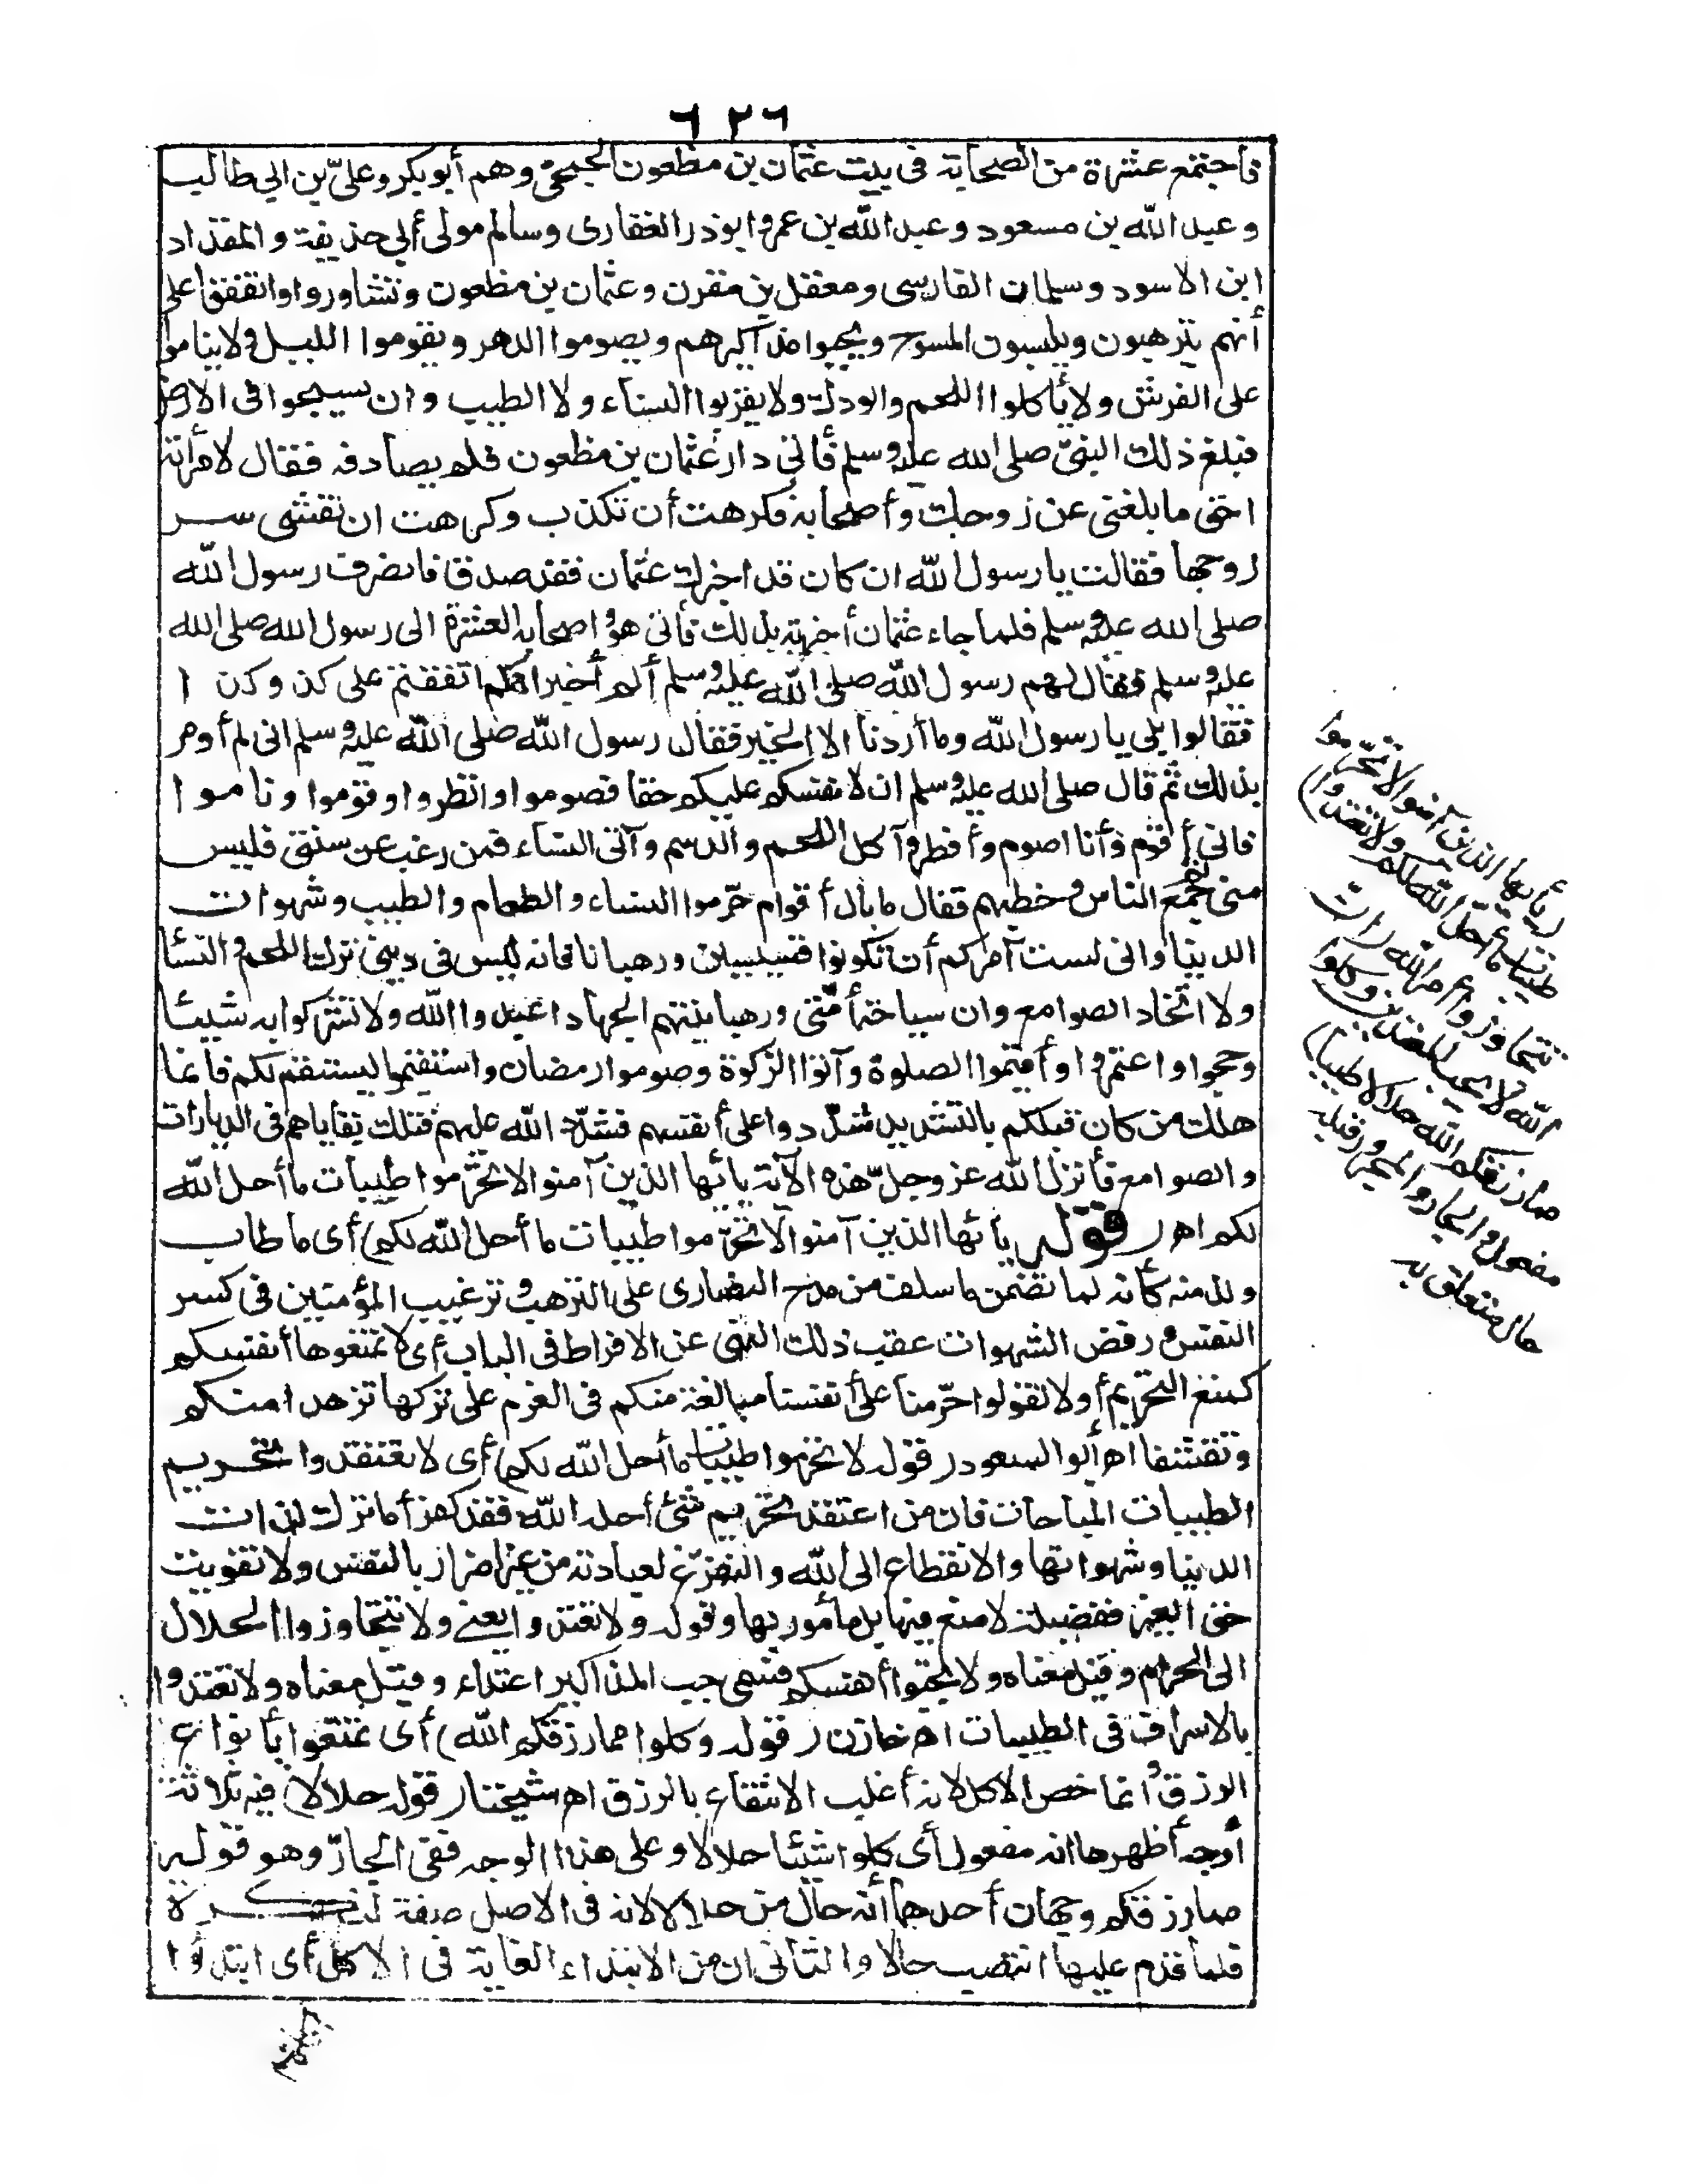 ٦٢٦
فاجتمع عشرة من الصحابة فى بيت عثمان بن مظعون الجمحى وهم أبو بكر وعلىّ بن ابى طالب
وعبد الله بن مسعود وعبد الله بن عمر وابو ذر الغفارى وسالم مولى أبى حذيفة والمقداد
ابن الاسود وسلمان الفارسى ومعقل بن مقرن وعثمان بن مظعون وتشاوروا واتفقوا على
أنهم يترهبون ويلبسون المسوح ويجبوا مذاكيرهم ويصوموا الدهر ويقوموا الليل ولا يناموا
على الفرش ولا يأكلوا اللحم والودك ولا يقربوا النساء ولا الطيب وان يسيحوا فى الارض
فبلغ ذلك النبىّ صلى الله عليه وسلم فأتى دار عثمان بن مظعون فلم يصادفه فقال لامرأته
احق ما بلغنى عن زوجك وأصحابه فكرهت أن تكذب وكرهت ان تفشى سر
زوجها فقالت يا رسول الله ان كان قد اخبرك عثمان فقد صدق فانصرف رسول الله
صلى الله عليه وسلم فلما جاء عثمان أخبرته بذلك فأتى هو واصحابه العشرة الى رسول الله صلى الله
عليه وسلم فقال لهم رسول الله صلى الله عليه وسلم ألم أخبر انكم اتفقتم على كذا وكذا
فقالوا بلى يا رسول الله وما أردنا الا الخير فقال رسول الله صلى الله عليه وسلم انى لم أومر
بذلك ثم قال صلى الله عليه وسلم ان لانفسكم عليكم حقا فصوموا وافطروا وقوموا وناموا
فانى أقوم وأنا اصوم وأفطر وآكل اللحم والدسم وآتى النساء فمن رغب عن سنتى فليس
منى ثم جمع الناس وخطبهم فقال ما بال أقوام حرّموا النساء والطعام والطيب وشهوات
الدنيا وانى لست آمركم أن تكونوا قسيسين ورهبانا فانه ليس فى دينى ترك اللحم والنسا
ولا اتخاذ الصوامع وان سياحة أمّتى ورهبانيتهم الجهاد اعبدوا الله ولا تشركوا به شيئا
وحجوا واعتمروا وأقيموا الصلوة وآتوا الزكوة وصوموا رمضان واستقيموا ليستقم لكم فانما
هلك من كان قبلكم بالتشديد شدّدوا على أنفسهم فشدّد الله عليهم فتلك بقاياهم فى الديارات
والصوامع فأنزل الله عز وجلّ هذه الآية يا ئها الذين آمنوا لا تحرّموا طيبات ما أحل الله
لكم اه ( قوله يا ئها الذين آمنوا لا تحرّموا طيبات ما أحل الله لكم) أى ما طاب
ولذ منه كأنه لما تضمن ما سلف من مدح النصارى على الترهب وترغيب المؤمنين فى كسر
النفس ورفض الشهوات عقب ذلك النهى عن الافراط فى الباب أى لا تمنعوها أنفسكم
كمنع التحريم أو لا تقولوا حرّمنا على أنفسنا مبالغة منكم فى العزم على تركها تزهدا منكم
وتقشفا اه أبو السعود ( قوله لا تحرّموا طيبات ما أحل الله لكم) أى لا تعتقدوا تحريم
الطيبات المباحات فان من اعتقد تحريم شئ أحله الله فقد كفر أما ترك لذات
الدنيا وشهواتها والانقطاع الى الله والتفرّغ لعبادته من غير اضرار بالنفس ولا تفويت
حق الغير ففضيلة لا منع منها بل مأمور بها وقوله ولا تعتدوا يعنى ولا تتجاوزوا الحلال
الى الحرام وقيل معناه ولا تجبوا أنفسكم فسمى جب المذاكير اعتداء وقيل معناه ولا تعتدوا
بالاسراف فى الطيبات اه خازن ( قوله وكلوا مما رزقكم الله) أى تمتعوا بأنواع
الرزق وانما خص الاكل لانه أغلب الانتفاع بالرزق اه شيخنا ( قوله حلالا) فيه ثلاثة
أوجه أظهرها انه مفعول أى كلوا شيئا حلالا وعلى هذا الوجه ففى الجارّ وهو قوله
مما رزقكم وجهان أحدهما أنه حال من حلالا لانه فى الاصل صفة لنكرة
فلما قدم عليها انتصب حالا والثانى ان من لابتداء الغاية فى الاكل أى ابتدؤا
(يأيها الذين آمنوا لا تحرّموا
طيبات ما أحل الله لكم ولا تعتدوا)
تتجاوزوا أمر الله (ان
الله لا يحب المعتدين وكلوا
مما رزقكم الله حلالا طيبا)
مفعول والجار والمجرور قبله
حال متعلق به